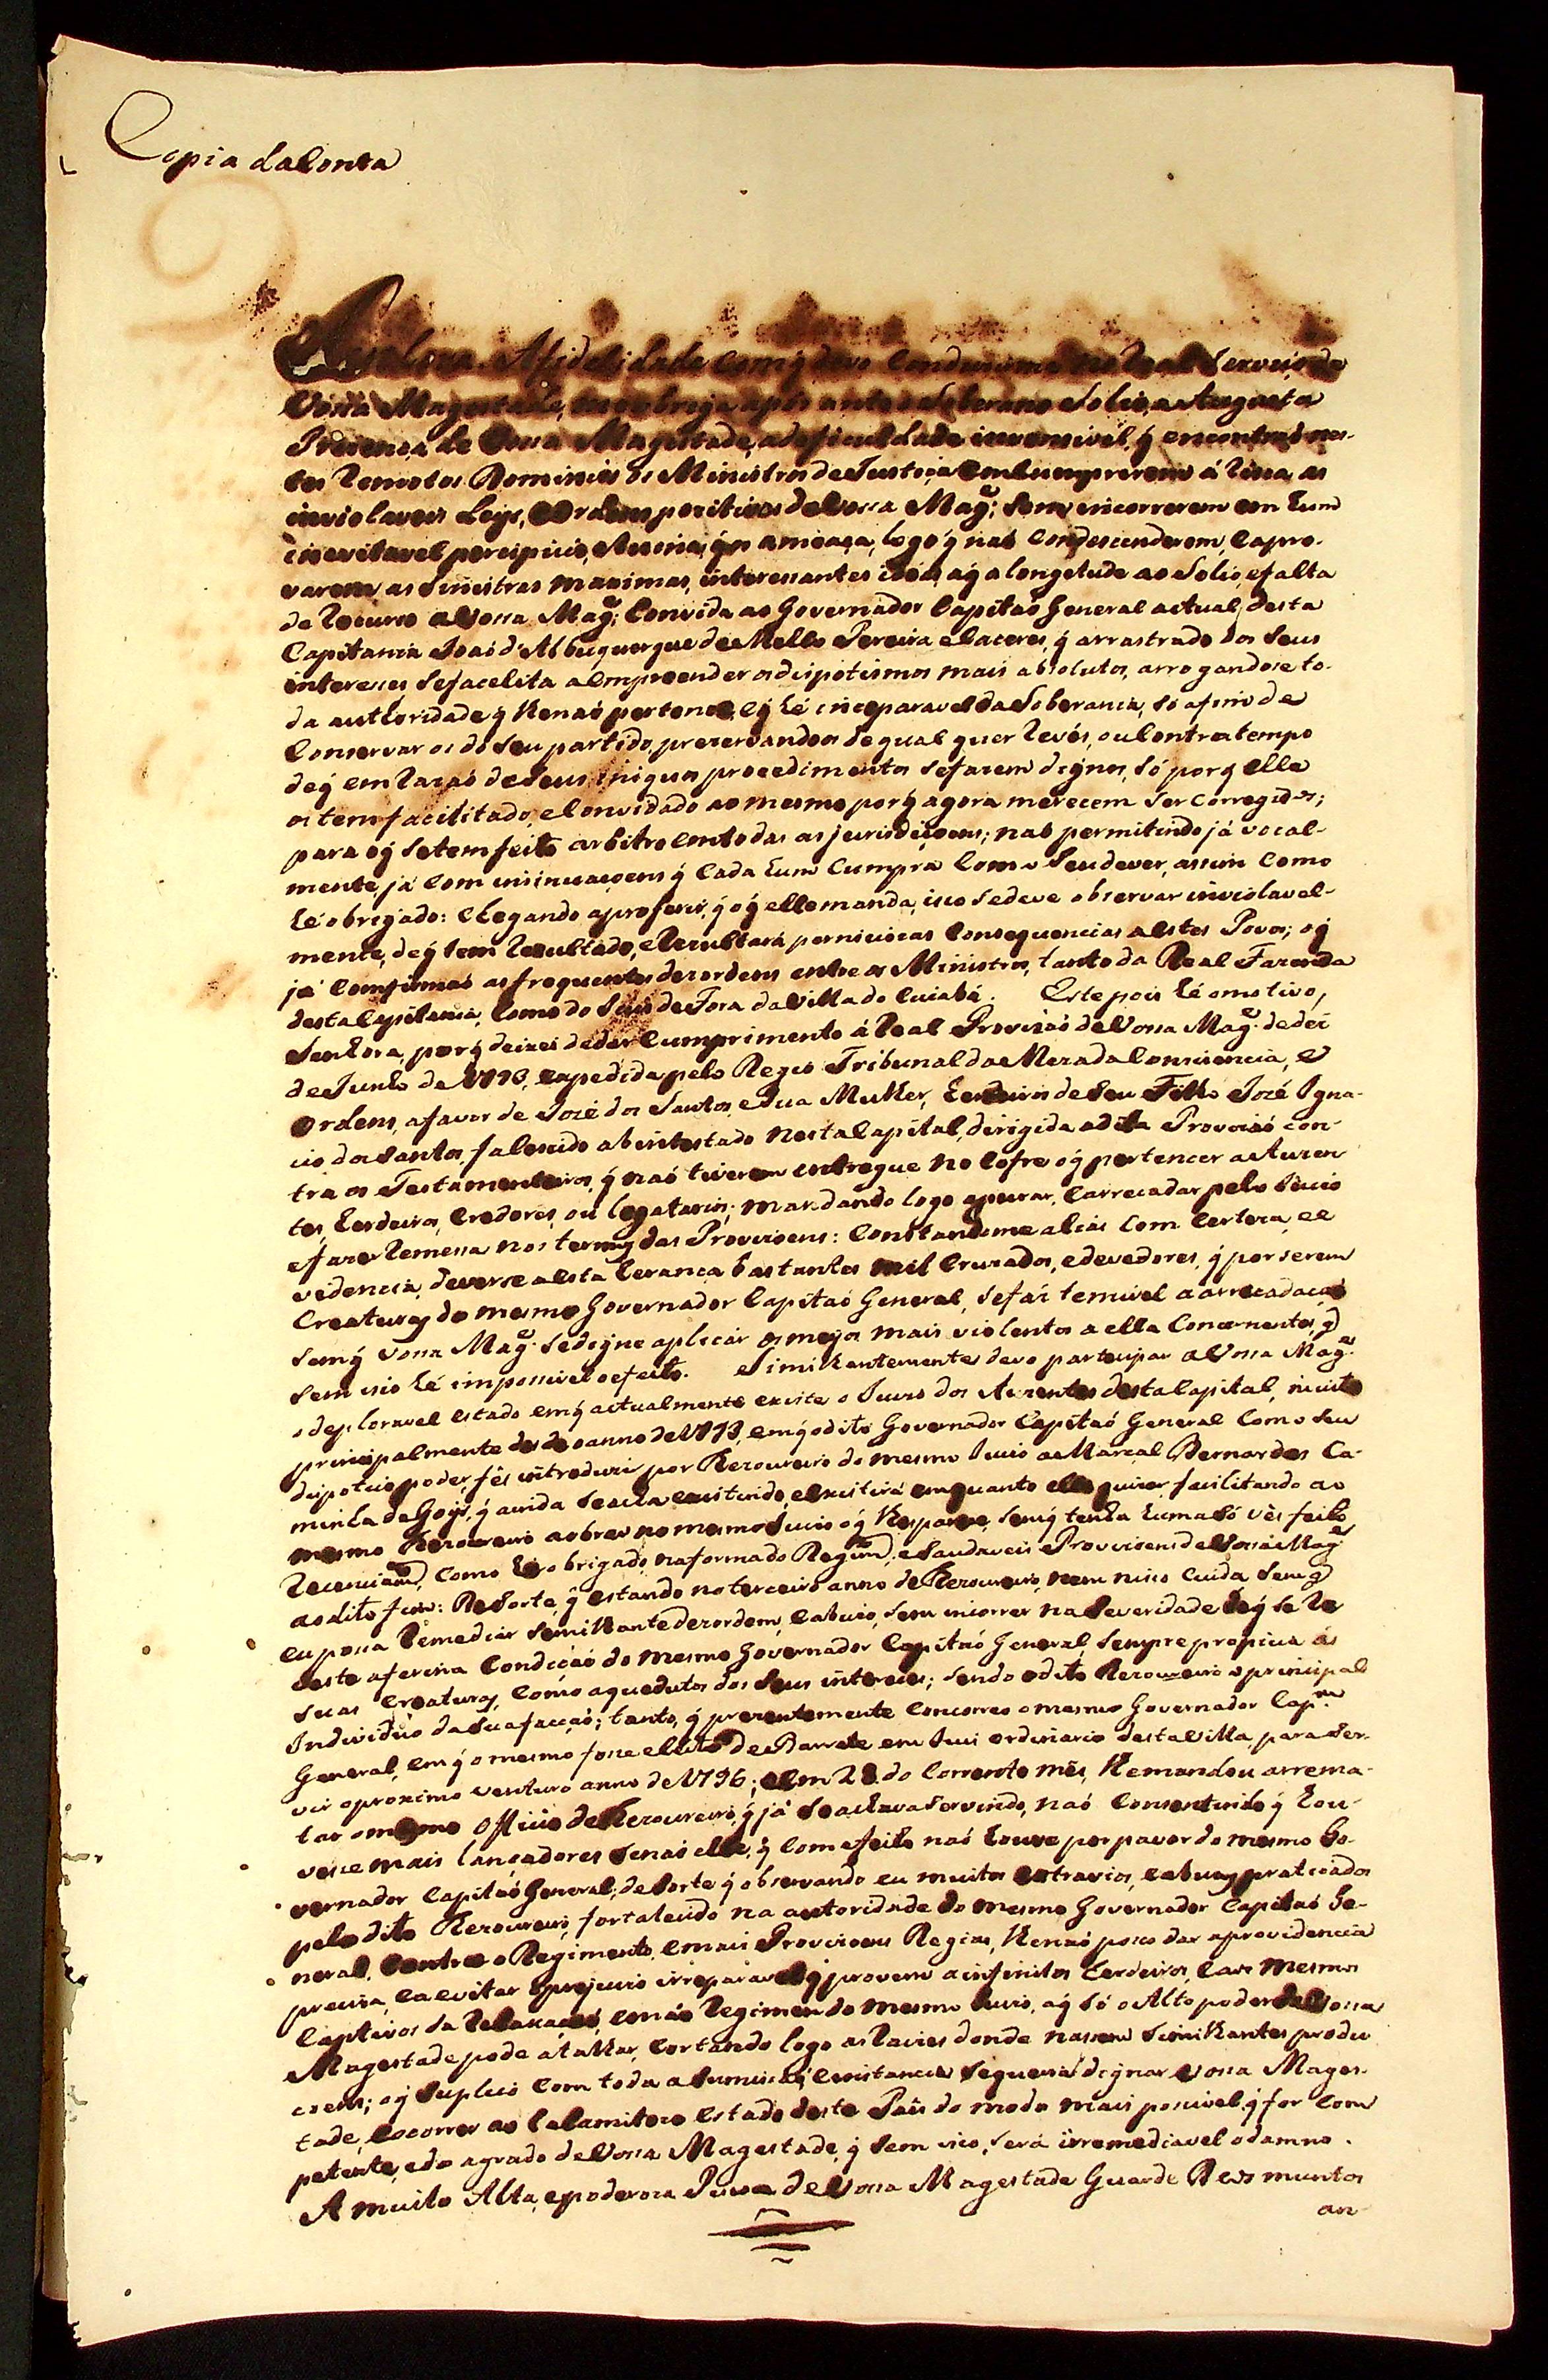 Copia da Conta
Senhora. A fidelidade com q̃ devo conduzirme no Real Serviço de
Vossa Magestade, me obriga a pôr ante o Soberano Solio, e Augusta
Prezença de Vossa Magestade, a deficuldade invensivel, q̃ encontraõ nes-
tes Remotos Dominios os Ministros de Justiça em cumprirem á risca, as
inviolaveis Leys, e Ordens pozitivas de Vossa Mag.e; sem incorrerem em hum
inevitavel percipicio, e ruina, q̃ os ameaça, logo q̃ naõ condescenderem, e apro-
varem as sinistras maximas, interessantes ideias, a q̃ a longetude ao Solio, e falta
de recurso a Vossa Mag.e; convida ao Governador Capitaõ General actual desta
Capitania Joaõ d'Albuquerque de Mello Pereira e Caceres, q̃ arrastrado dos seus
interesses, se facelita a emprender os dispotismos mais absolutos, arrogandose to-
da authoridade q̃ lhe naõ pertence, e q̃ hé inceparavel da Soberania, só a fim de
conservar os do seu partido, prezervandoos de qual quer revés, ou contratempo
de q̃ em razaõ de seus iniquos procedimentos se fazem dignos, só porq̃ elle
os tem facilitado, e convidado ao mesmo porq̃ agora merecem ser corregidos;
para o q̃ se tem feito arbitro em todas as jurisdiçoens; naõ permitindo já vocal-
mente, já com insinuaçoens q̃ cada hum cumpra com o seu dever, assim como
hé obrigado: chegando a proferir, q̃ o q̃ elle manda, isso se deve observar inviolavel-
mente, de q̃ tem rezultado, e rezultará perniciozas consequencias a estes Povos; o q̃
já confirmaõ as frequentes dezordens entre os Ministros, tanto da Real Fazenda
desta Capitania, como do Juis de Fora da Villa do Cuiabá. Este pois hé o motivo,
Senhora, porq̃ deixei de dar cumprimento á Real Provizaõ de Vossa Mag.e de dez
de Junho de 1793, expedida pelo Regio Tribunal da Meza da Consciencia, e
Ordens, a favor de Jozé dos Santos, e Sua Mulher, herdeiros de seu Filho Jozé Igna-
cio dos Santos, falescido abintestado nesta Capital, dirigida a dita Provizaõ con-
tra os Testamenteiros, q̃ naõ tiverem entregue no cofre o q̃ pertencer a Auzen
tes, herdeiros, credores, ou legatarios; mandando logo apurar, e arrecadar pelo Juizo
e fazer remessa nos termos das Provizoens: constandome alias com certeza, e e
videncia, deverse a esta herança bastantes mil cruzados, e devedores, q̃ por serem
creaturas do mesmo Governador Capitaõ General, se fáz temivel a arrecadaçaõ
sem q̃ Vossa Mag.e se digne aplicar os meyos mais violentos a ella concernentes, q̃
sem isso hé impossivel o efeito. Similhantemente devo partecipar a Vossa Mag.e
o deploravel estado em q̃ actualmente existe o Juizo dos Auzentes desta Capital, muito
principalmente desde o anno de 1793, em q̃ o dito Governador Capitaõ General com o seu
dispotico poder, fés introduzir por Thezoureiro do mesmo Juizo a Marcal Bernardes Ca-
minha de Goys, q̃ ainda se acha existindo, e existirá emquanto elle quizer facilitando ao
mesmo Thezoureiro a obrar no mesmo Juizo o q̃ lhe parece, sem q̃ tenha huma só vês feito
como hé obrigado, na forma do Regim.to, e Saudaveis Provizoens de Vossa Mag.e
ao dito fim: De sorte, q̃ estando no terceiro anno de Thezoureiro, nem nisso cuida sem q̃
eu possa remediar similhante dezordem, e abuzo, sem incorrer na severidade de q̃ se re
veste a ferina condiçaõ do mesmo Governador Capitaõ General, sempre propicia ás
suas creaturas, como aquedutos dos seus interesses; sendo o dito Thezoureiro o principal
Individuo da sua facçaõ; tanto, q̃ prezentemente concorreo o mesmo Governador Cap.m
General, em q̃ o mesmo fosse eleito de Barrete em Juiz ordinario desta Villa, para ser-
vir o proximo venturo anno de 1796; e em 28 do corrente mês, lhe mandou arrema-
tar o mesmo officio de Thezoureiro, q̃ já se achava servindo, naõ consentindo q̃ hou
vesse mais lançadores senaõ elle, q̃ com efeito naõ houve por pavor do mesmo Go-
vernador Capitaõ General; de sorte q̃ observando eu muitos extravios, e abuzos praticados
pelo dito Thezoureiro, fortalecido na autoridade do mesmo Governador Capitaõ Ge-
neral, contra o Regimento, e mais Provizoens Regias, lhe naõ posso dar a providencia
preciza, e a evitar o prejuizo irreparavel q̃ provem a infinitos herdeiros, e aos mesmos
Captivos da Relaxaçaõ, e máo Regimen do mesmo Juizo, a q̃ só o Alto poder de Vossa
Magestade pode atalhar, cortando logo as raizes donde nascem similhantes produ
coens; o q̃ suplico com toda a sumissaõ, e instancia se queira dignar Vossa Mages-
tade, socorrer ao calamitozo estado deste Paîs do modo mais possivel q̃ for com
petente, e do agrado de Vossa Magestade, q̃ sem isso, será irremediavel o damno.
A muito Alta, e poderoza Pessoa de Vossa Magestade Guarde Deos muntos
an